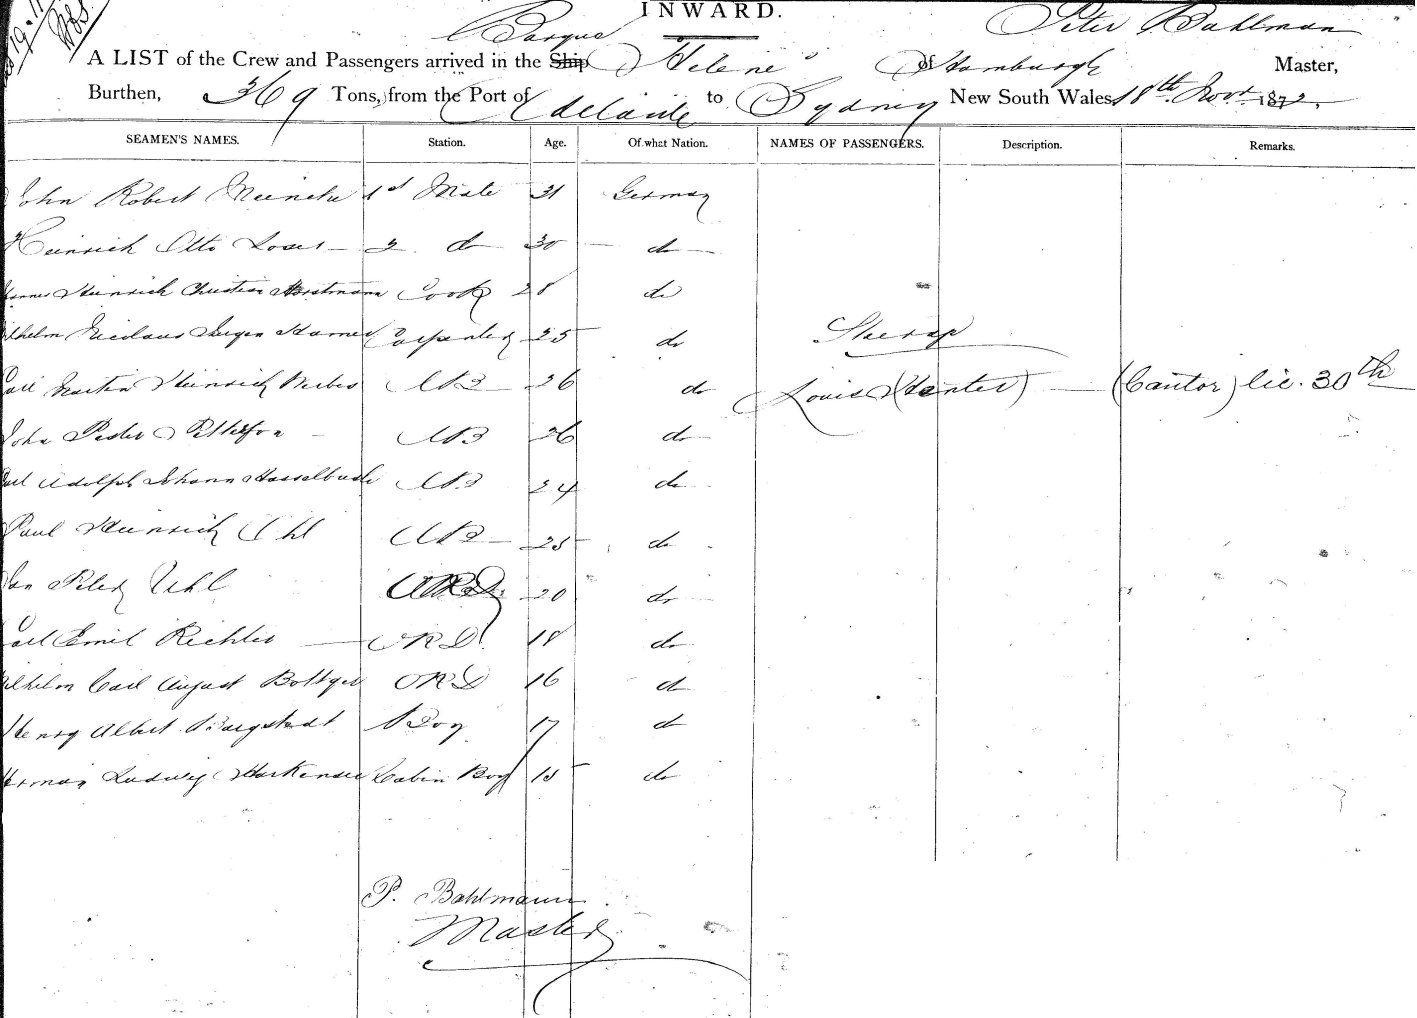 INWARD.
Barque Peter Bahlman
A LIST of the Crew and Passengers arrived in the Ship "Helene" of Hamburgh Master,
Burthen, 369 Tons, from the Port of Adelaide to Sydney New South Wales 18th Novr. 1872,
SEAMEN'S NAMES. Station. Age. Of what Nation. NAMES OF PASSENGERS. Description. Remarks.
John Robert Meincke 1st Mate 31 German
Heinrich Otto 2 do 30 do
Heinrich Christian Horstmann Cook 28 do
Nicolaus Jurgen Carpenter 25 do Steerage
Martin Heinrich AB 26 do Louis (Henter) (Cantor) lic. 30th
John AB 26 do
Adolph Johann Hasselbusch AB 24 do
Paul Heinrich Uhl AB 25 do
Jan Peter Uhl ORD 20 do
Carl Emil Richter ORD 18 do
Wilhelm Carl August Bottger ORD 16 do
Henry Albert Bargstedt Boy 17 do
Herman Ludwig Cabin Boy 15 do
P. Bahlmann
Master